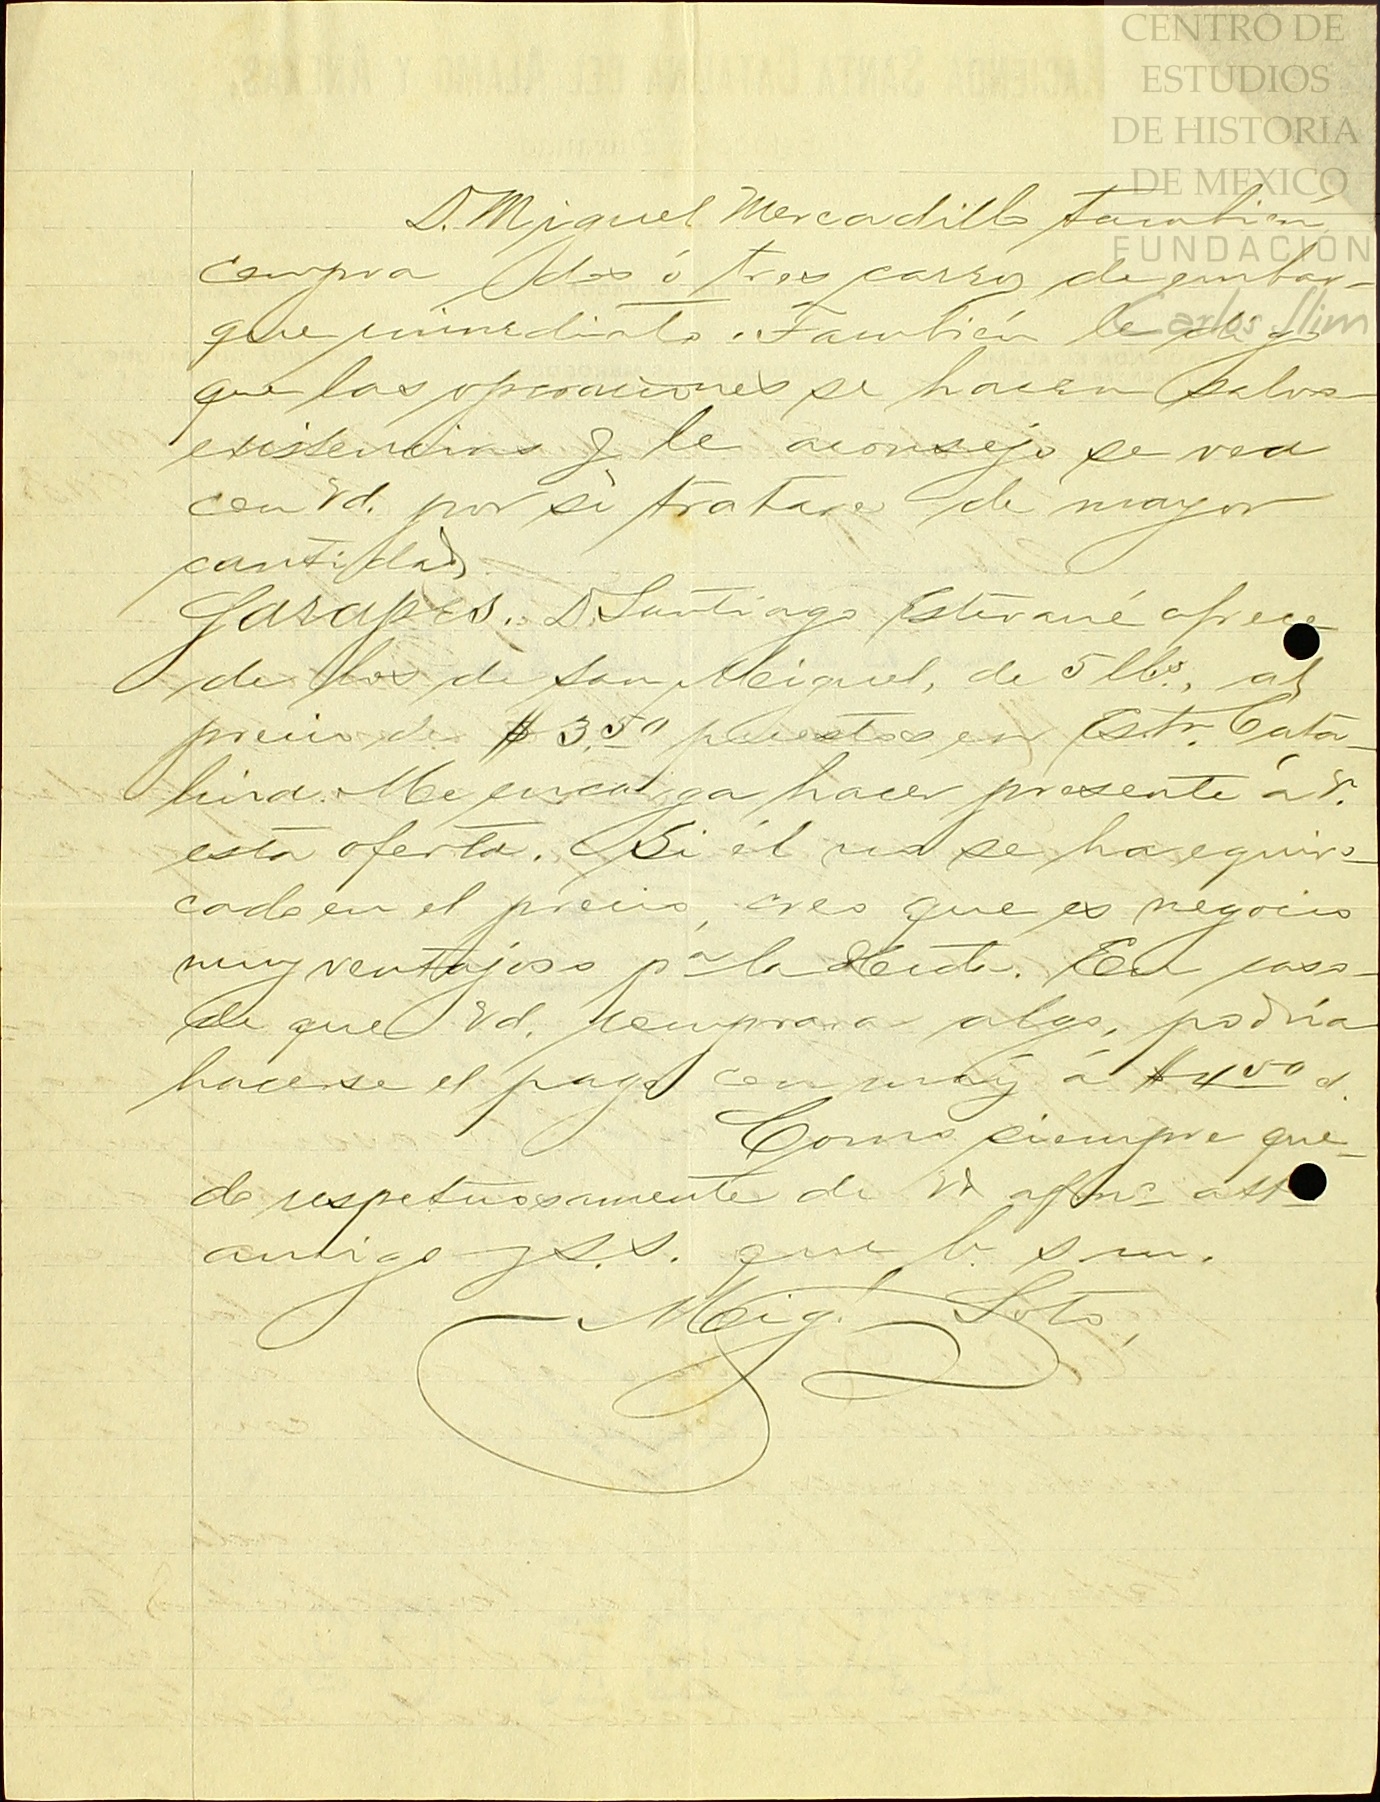 CENTRO DE
ESTUDIOS
DE HISTORIA
DE MEXICO
FUNDACIÓN
Carlos Slim
HACIENDA SANTA CATALINA DEL ALAMO Y ANEXAS.
D. Miguel Mercadillo también
compra dos ó tres carros de embar-
que inmediato. También le digo
que las operaciones se hacen salvo
existencias y le aconsejo se vea
con Vd. por si tratare de mayor
cantidad.
Jarapes. D. Santiago ofrece
de los de San Miguel, de 5 lbs., al
precio de $3.50 puestos en Estn. Cata-
lina. Me encarga hacer presente á V.
esta oferta. Si él no se ha equivo-
cado en el precio, creo que es negocio
muy ventajoso pa la Hcda. En caso
de que Vd. comprara algo, podría
hacerse el pago con maíz á $4.50 
Como siempre que-
do respetuosamente de Vd afmo atto
amigo y S.S. que b. s m.
Migl. Soto,